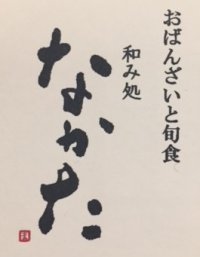 おばんざいと旬食
和み処
なかた